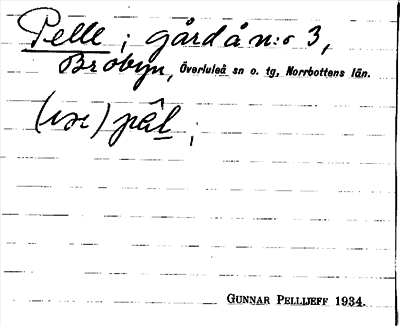 Pelle ; gård å n:r 3,
Brobyn, Överluleå sn o. tg, Norrbottens län.
pêl ;
GUNNAR PELLIJEFF 1934.